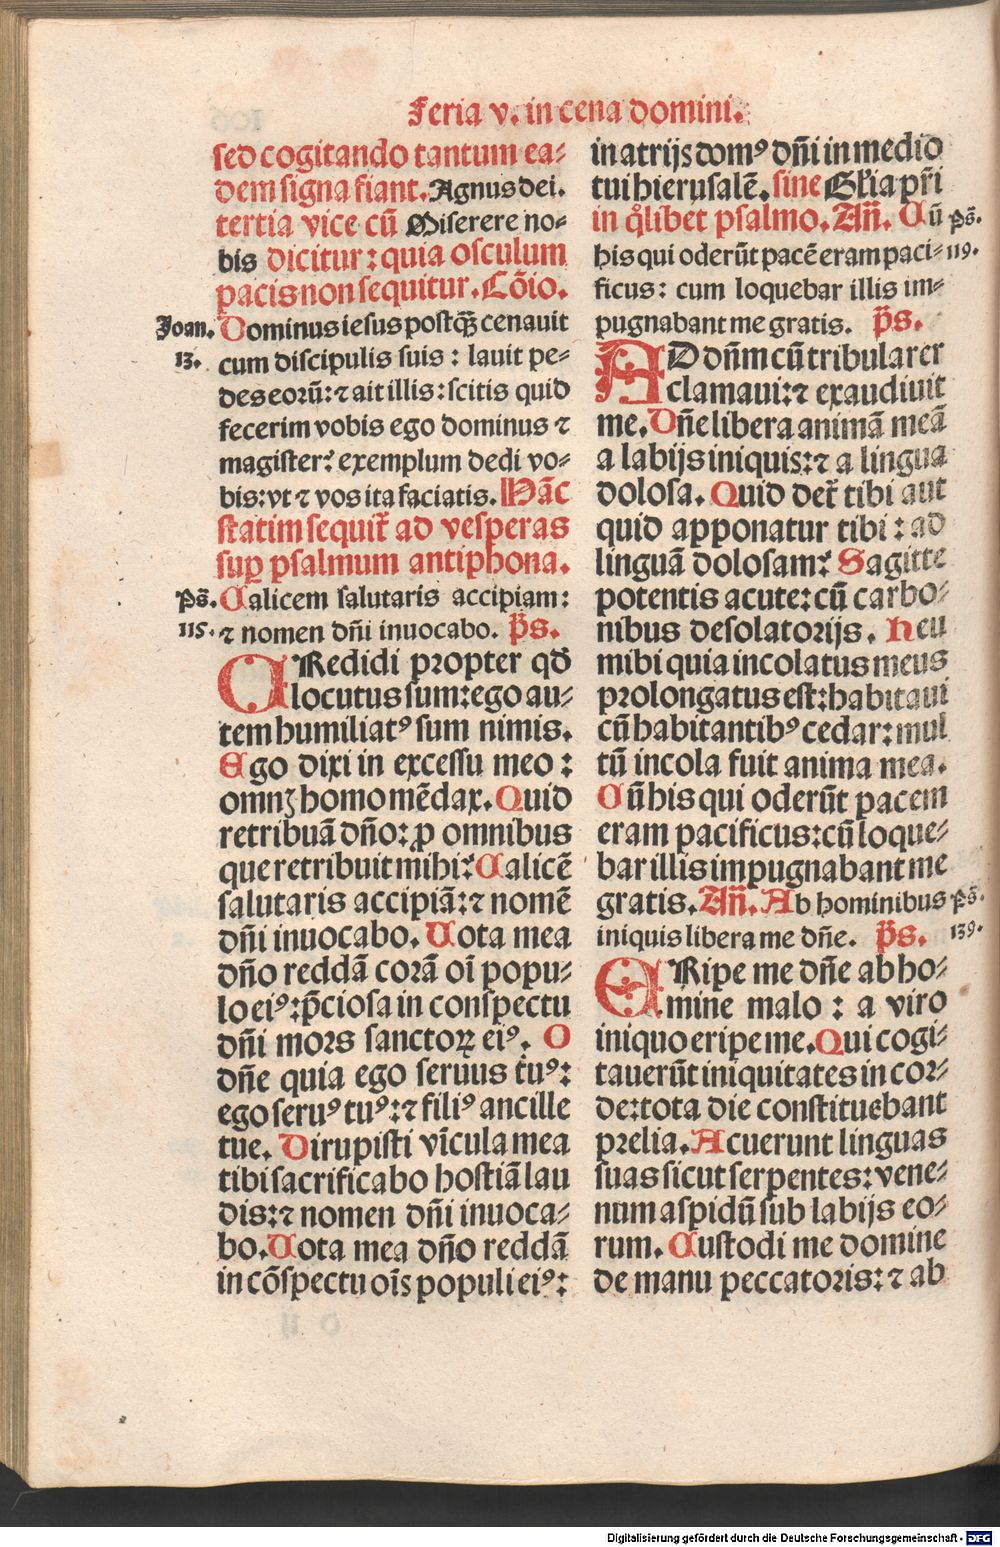 Feria v. in cena domini.
sed cogitando tantum ea⸗
dem signa fiant. Agnus dei.
tertia vice cū Miserere no⸗
bis dicitur: quia osculum
pacis non sequitur. Cōio.
Joan. Dominus iesus postqꝫ cenauit
13. cum discipulis suis: lauit pe⸗
des eorū: ⁊ ait illis: scitis quid
fecerim vobis ego dominus ⁊
magister? exemplum dedi vo⸗
bis: vt ⁊ vos ita faciatis. Hāc
statim sequit̄ ad vesperas
suꝑ psalmum antiphona.
Ps̄. Calicem salutaris accipiam:
115. ⁊ nomen dn̄i inuocabo. p̄s.
CRedidi propter qd̄
locutus sum: ego au⸗
tem humiliatꝰ sum nimis.
Ego dixi in excessu meo:
omnꝫ homo mēdax. Quid
retribuā dn̄o: ꝓ omnibus
que retribuit mihi? Calicē
salutaris accipiā: ⁊ nomē
dn̄i inuocabo. Vota mea
dn̄o reddā corā oī popu⸗
lo eiꝰ: p̄ciosa in conspectu
dn̄i mors sanctoꝝ eiꝰ. O
dn̄e quia ego seruus tuꝰ:
ego seruꝰ tuꝰ: ⁊ filiꝰ ancille
tue. Dirupisti vīcula mea
tibi sacrificabo hostiā lau
dis: ⁊ nomen dn̄i inuoca⸗
bo. Vota mea dn̄o reddā
in cōspectu oīs populi eiꝰ:
in atrijs domꝰ dn̄i in medio
tui hierusalē. sine Gl̄ia pr̄i
in q̊libet psalmo. An̄. Cū Ps̄.
his qui oderūt pacē eram paci⸗ 119.
ficus: cum loquebar illis im⸗
pugnabant me gratis. p̄s.
AD dn̄m cū tribularer
clamaui: ⁊ exaudiuit
me. Dn̄e libera animā meā
a labijs iniquis: ⁊ a lingua
dolosa. Quid det̄ tibi aut
quid apponatur tibi: ad
linguā dolosam? Sagitte
potentis acute: cū carbo⸗
nibus desolatorijs. Heu
mihi quia incolatus meus
prolongatus est: habitaui
cū habitantibꝰ cedar: mul
tū incola fuit anima mea.
Cū his qui oderūt pacem
eram pacificus: cū loque⸗
bar illis impugnabant me
gratis. An̄. Ab hominibus Ps̄.
iniquis libera me dn̄e. p̄s. 139.
ERipe me dn̄e ab ho⸗
mine malo: a viro
iniquo eripe me. Qui cogi⸗
tauerūt iniquitates in cor⸗
de: tota die constituebant
prelia. Acuerunt linguas
suas sicut serpentes: vene⸗
num aspidū sub labijs eo⸗
rum. Custodi me domine
de manu peccatoris: ⁊ ab
Digitalisierung gefördert durch die Deutsche Forschungsgemeinschaft - DFG